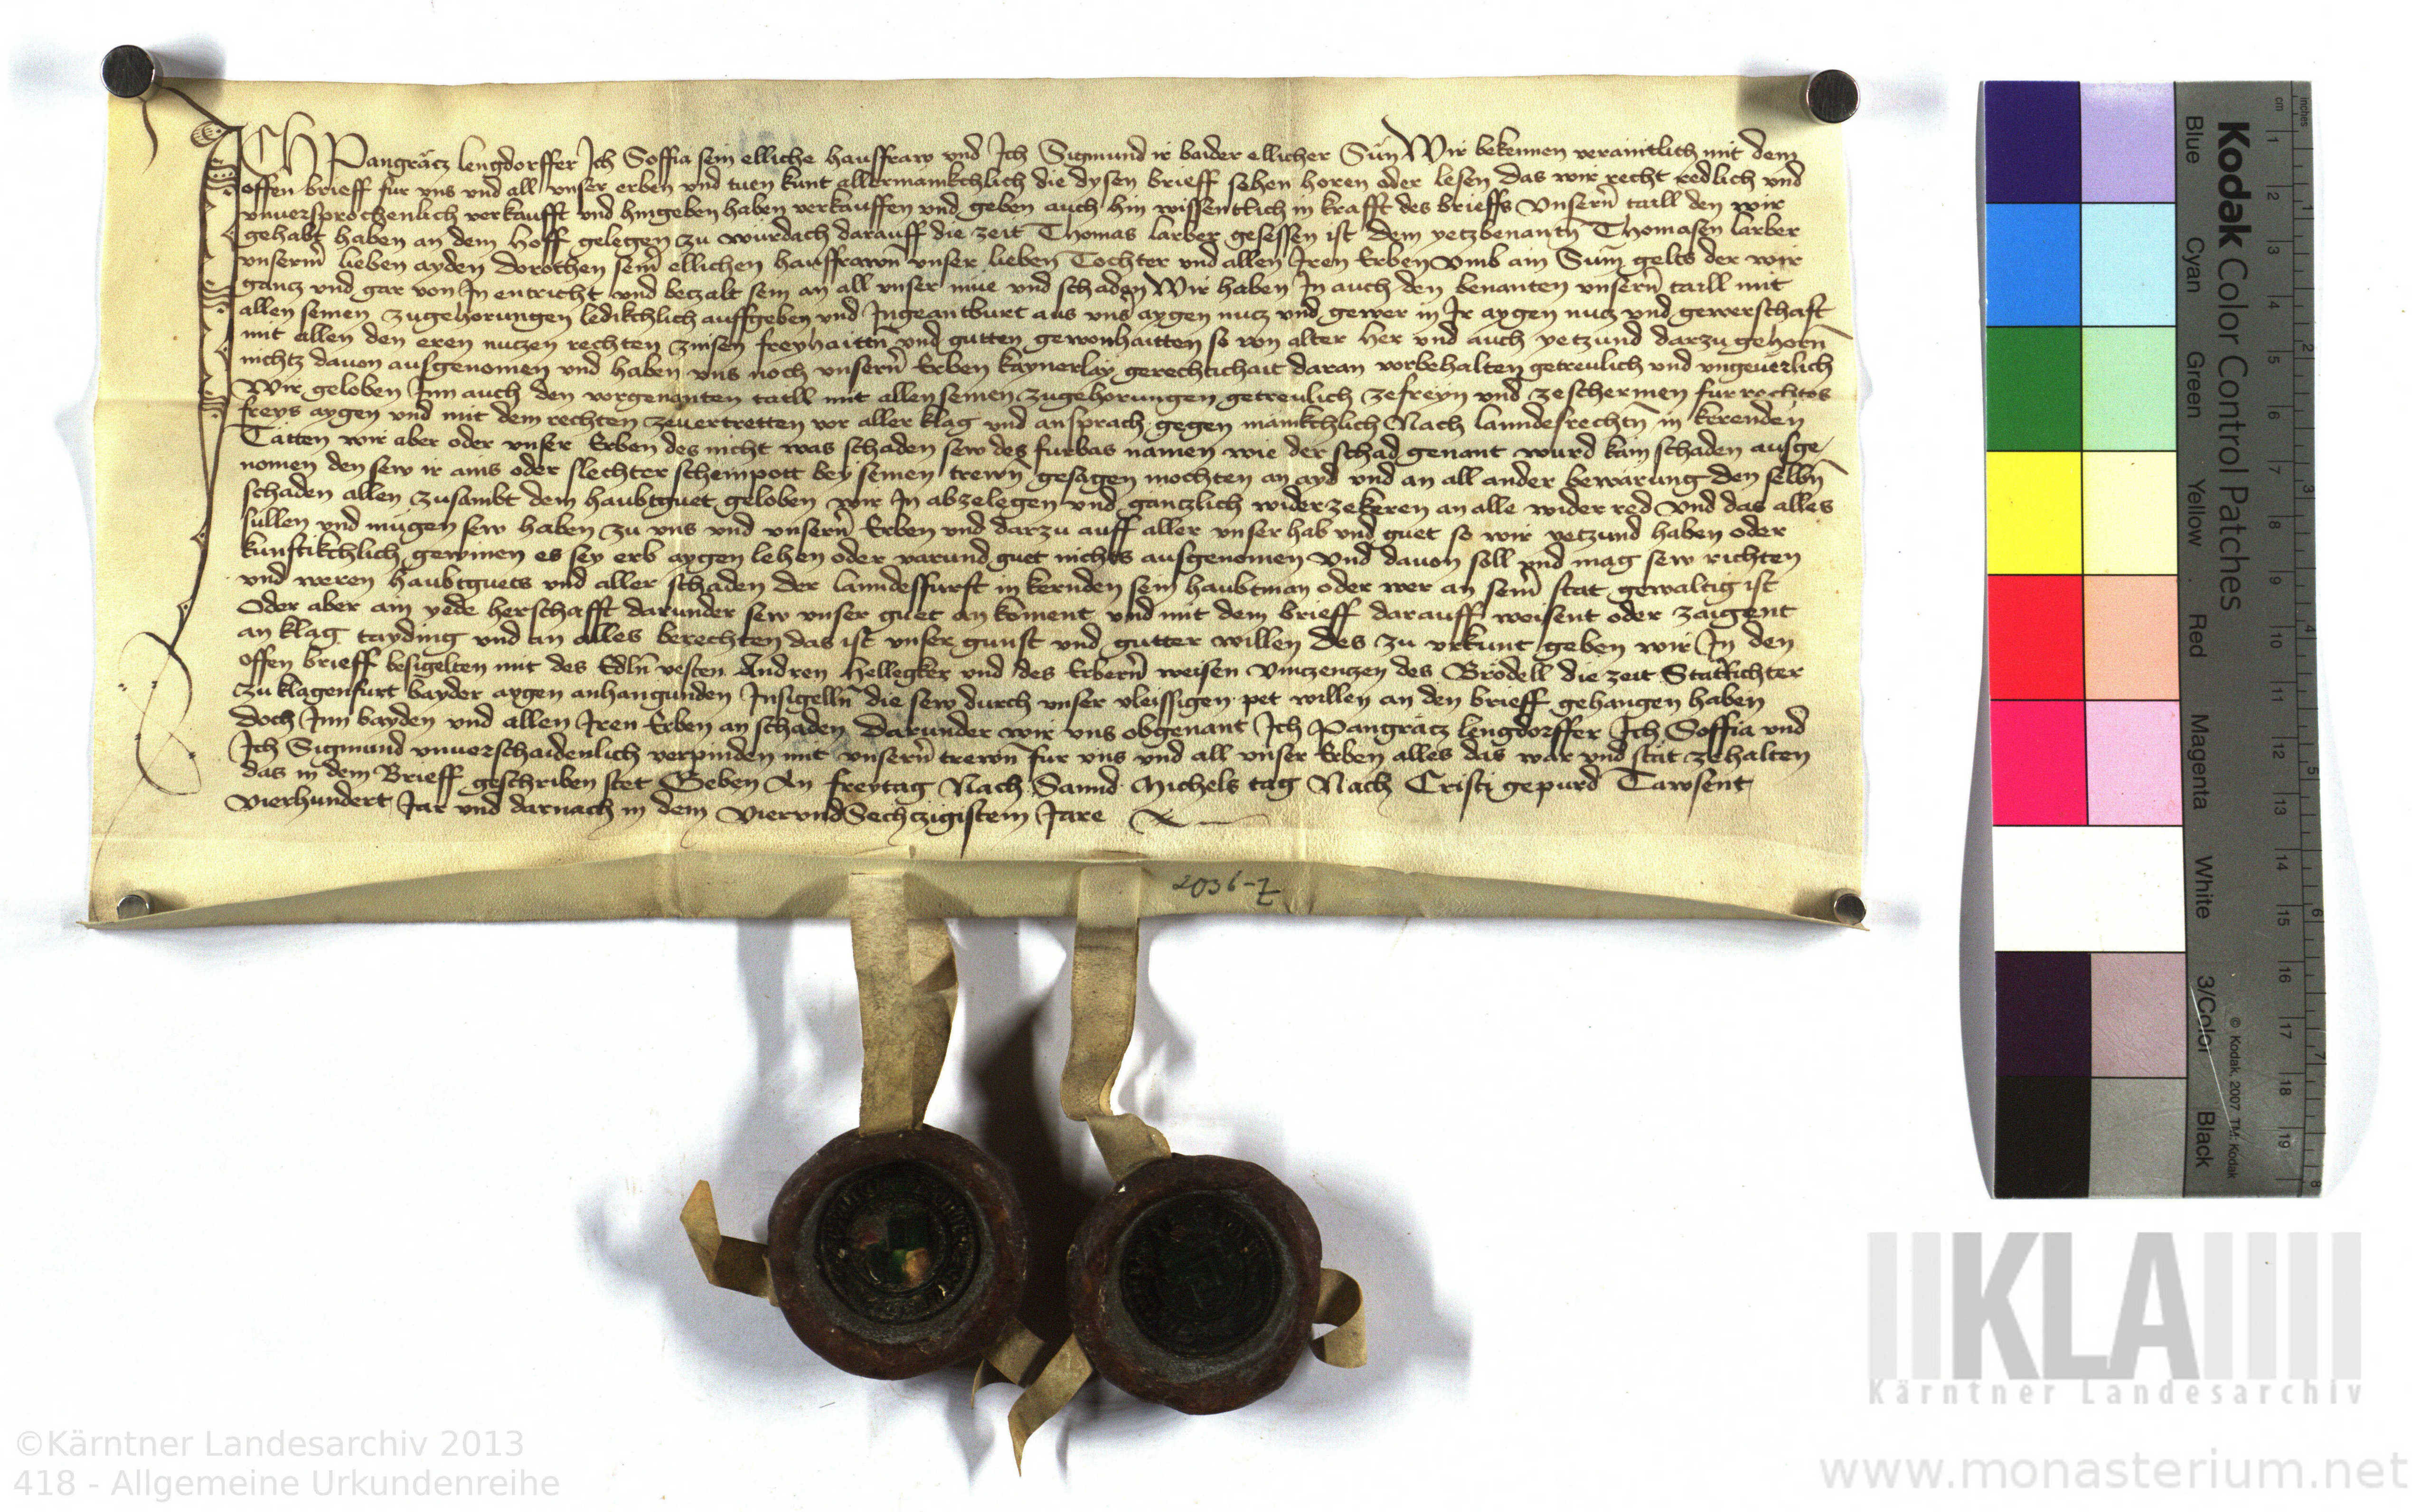 ICH Pangräcz lengdorffer Ich Soffia sein elliche hausfraw vnd Ich Sigmund ir baider ellicher Sün Wir bekennen veraintlich mit dem
offen brieff für vns vnd all vnser erben vnd tuen kunt allermainkchlich die dysen brieff sehen horen oder lesen das wir recht redlich vnd
vnuersprochenlich verkaufft vnd hingeben haben verkauffen vnd geben auch hin wissentlich in krafft des brieffs Vnsern̄ taill den wir
gehabt haben an dem Hoff gelegen zu wurdach darauff die zeit Thomas larber gesessen ist dem yetzbenantn̄ Thomasen larber
vnserm̄ lieben ayden dorothen seīn ellichen hausfrawn̄ vnser lieben Tochter vnd allen Iren Erben Vmb ain Sum̄ gelts der wir
gancz vnd gar von In entricht vnd beczalt sein an all vnser müe vnd schaden Wir haben In auch den benanten vnsern̄ taill mit
allen seinen zugehorungen ledikchlich auffgeben vnd Ingeantburt aus vns aygen nucz vnd gewer in Ir aygen nucz vnd gewerschaft
mit allen den eren nuczen rechten zinsen freyhaittn̄ vnd gutten gewonhaitten so von alter her vnd auch yetzund darzu gehorn̄
nichtz dauon ausgenomen vnd haben vns noch vnsern̄ Erben kaynerlay gerechtichait daran vorbehalten getreulich vnd vngeuerlich
Wir geloben Inn auch den vorgenanten taill mit allen seinen zugehorungen getreulich zefreyn vnd zeschermen fur rechtes
freys aygen vnd mit dem rechten zeuertretten vor aller klag vnd ansprach gegen mainkchlich Nach lanndesrechtn̄ in kerenden
Tätten wir aber oder vnser Erben des nicht was schaden sew des furbas namen wie der schad genant wurd kain schaden ausge/
nomen den sew ir ains oder slechter scheinpott bey seinen trewn̄ gesagen mochten an ayd vnd an all ander bewarung den selbn̄
schaden allen zusambt dem haubtguet geloben wir In abzelegen vnd gänczlich widerzekeren an alle wider red Vnd das alles
sullen vnd mügen sew haben zu vns vnd vnsern̄ Erben vnd darzu auff aller vnser hab vnd guet so wir yetzund haben oder
kunftikchlich gewinnen es sey erb aygen lehen oder varund guet nichts ausgenomen Vnd dauon soll vnd mag sew richten
vnd weren haubtguets vnd aller schaden der lanndesfurst in kernden sein haubtman oder wer an seim̄ stat gewaltig ist
Oder aber ain yede herschafft darunder sew vnser guet an koment vnd mit dem brieff darauff weisent oder zaigent
an klag tayding vnd an alles berechten das ist vnser gunst vnd gutter willen Des zu vrkunt geben wir In den
offen brieff besigelten mit des Edln̄ vesten Andren Hellegker vnd des Erbern̄ weisen Vinczenzen des Brödell die zeit Statrichter
zu klagenfurt bayder aygen anhangunden Insigelln̄ die sew durch vnser vleissigen pet willen an den brieff gehangen haben
doch Inn bayden vnd allen Iren Erben an schaden Darunder wir vns obgenant Ich Pangräcz lengdorffer Ich Soffia vnd
Ich Sigmund vnuerschaidenlich verpinden mit vnsern̄ trewn̄ fur vns vnd all vnser Erben alles das war vnd stät zehalten
das in dem Brieff geschriben stet Geben An freytag Nach Sannd Michels tag Nach Cristi gepurd Tawsent
vierhundert Iar vnd darnach in dem vierundSechczigistem Iare
2036-Z
Kodak Color Control Patches
Blue Cyan Green Yellow Red Magenta White 3/Color Black
© Kodak, 2007 TM: Kodak
cm 1 2 3 4 5 6 7 8 9 10 11 12 13 14 15 16 17 18 19
inches 1 2 3 4 5 6 7 8
KLA
Kärntner Landesarchiv
©Kärntner Landesarchiv 2013
418 - Allgemeine Urkundenreihe
www.monasterium.net